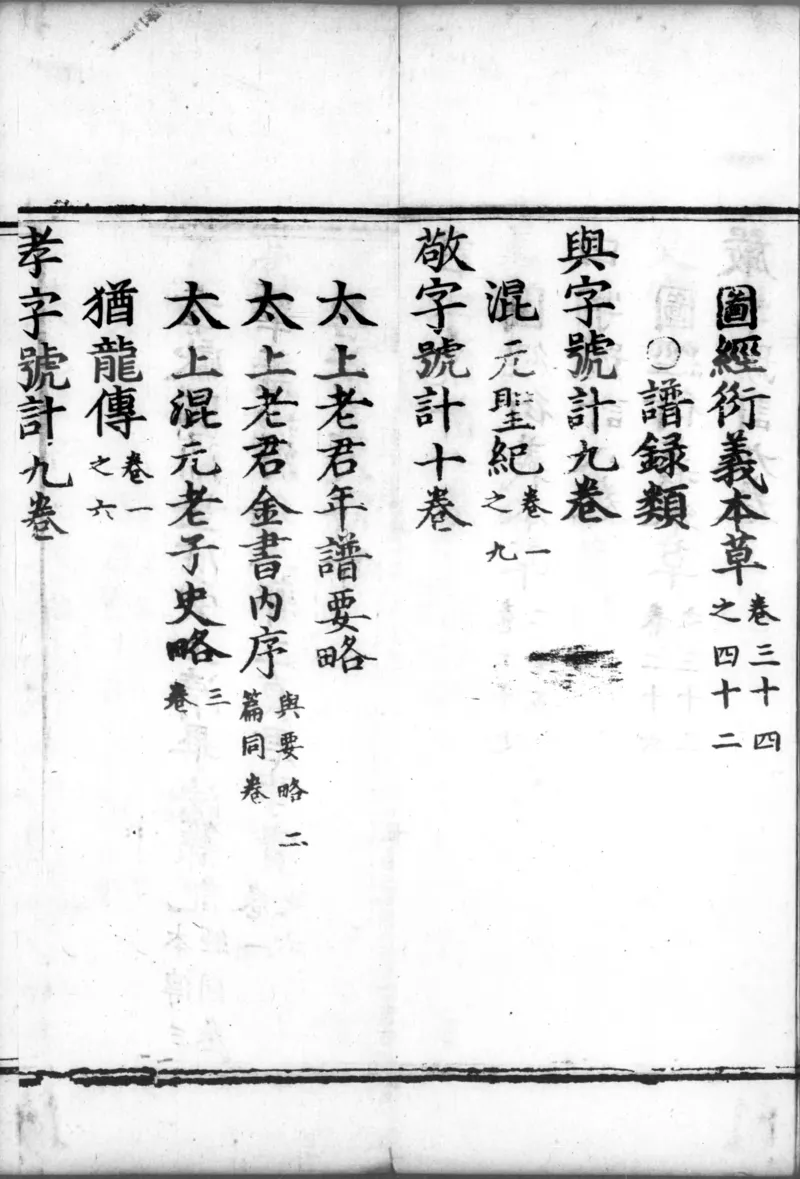 圖經衍義本草卷三十四之四十二
○譜録類
與字號計九卷
混元聖紀卷一之九
敬字號計十卷
太上老君年譜要略
太上老君金書内序與要略二篇同卷
太上混元老子史略三卷
猶龍傳卷一之六
孝字號計九卷